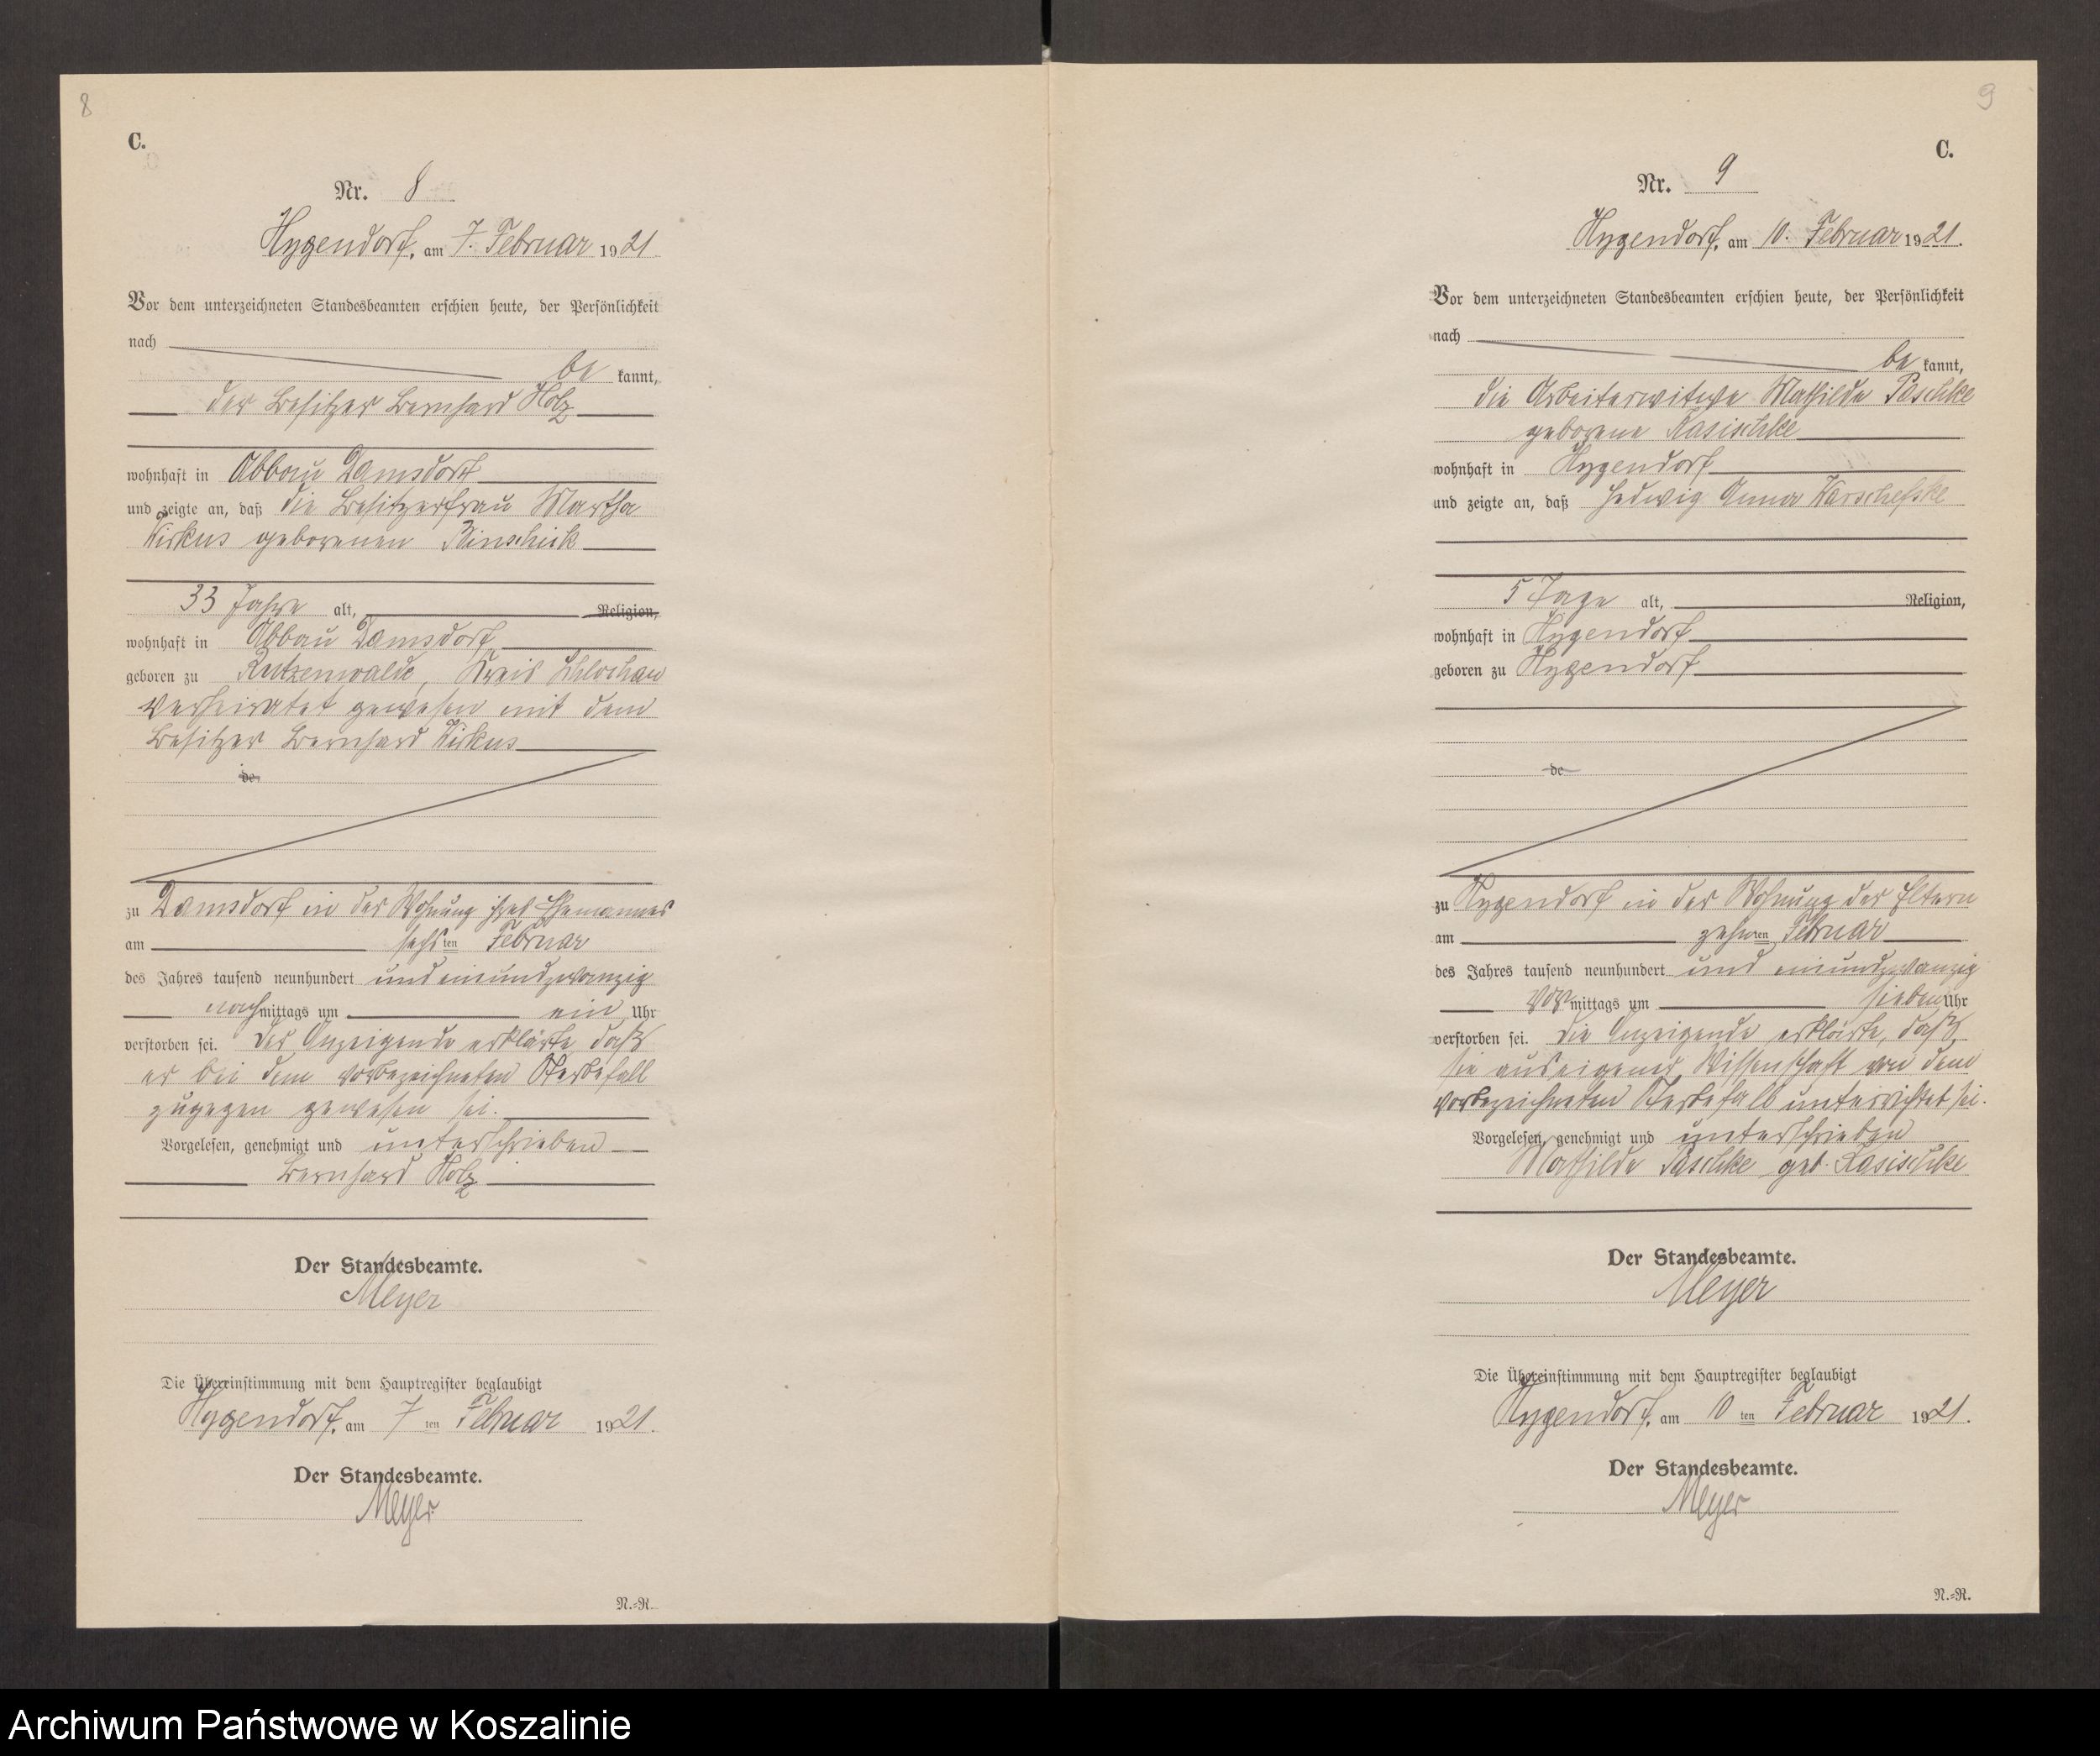 8
C.
Nr. 8
Hygendorf, am 7. Februar 1921.
Vor dem unterzeichneten Standesbeamten erschien heute, der Persönlichkeit
nach
be kannt,
der Besitzer Bernhard Holz
wohnhaft in Abbau Damsdorf
und zeigte an, daß die Besitzerfrau Martha
Kirkus geborenen
33 Jahre alt, Religion,
wohnhaft in Abbau Damsdorf
geboren zu Rutzenwalde, Kreis Schlochau
verheiratet gewesen mit dem
Besitzer Bernhard Kirkus
de
zu Damsdorf in der Wohnung ihres Ehemannes
am sechsten Februar
des Jahres tausend neunhundert und einundzwanzig
nachmittags um ein Uhr
verstorben sei. Der Anzeigende erklärte, daß
er bei dem vorbezeichneten Sterbefall
zugegen gewesen sei.
Vorgelesen, genehmigt und unterschrieben
Bernhard Holz
Der Standesbeamte.
Meyer
Die Übereinstimmung mit dem Hauptregister beglaubigt
Hygendorf, am 7 ten Februar 1921.
Der Standesbeamte.
Meyer
N.-R.
9
C.
Nr. 9
Hygendorf, am 10. Februar 1921.
Vor dem unterzeichneten Standesbeamten erschien heute, der Persönlichkeit
nach
be kannt,
die Arbeiterwitwe Mathilde Paschke
geborene Kasischke
wohnhaft in Hygendorf
und zeigte an, daß Hedwig Anna
5 Tage alt, Religion,
wohnhaft in Hygendorf
geboren zu Hygendorf
de
zu Hygendorf in der Wohnung der Eltern
am zehnten Februar
des Jahres tausend neunhundert und einundzwanzig
vormittags um sieben Uhr
verstorben sei. Die Anzeigende erklärte, daß
sie aus eigener Wissenschaft von dem
vorbezeichneten Sterbefall unterrichtet sei.
Vorgelesen, genehmigt und unterschrieben
Mathilde Paschke geb. Kasischke
Der Standesbeamte.
Meyer
Die Übereinstimmung mit dem Hauptregister beglaubigt
Hygendorf, am 10 ten Februar 1921.
Der Standesbeamte.
Meyer
N.-R.
Archiwum Państwowe w Koszalinie